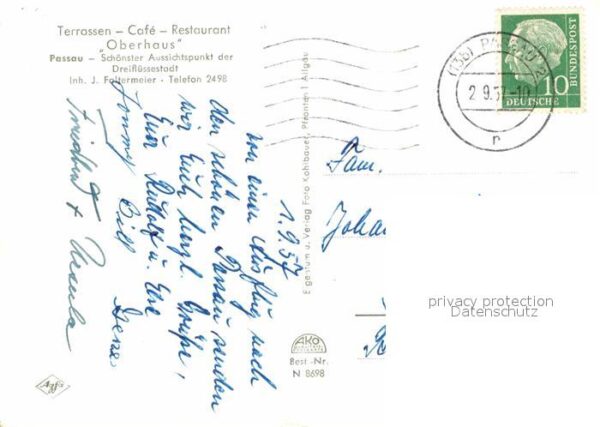 Terrassen – Café – Restaurant
"Oberhaus"
Passau – Schönster Aussichtspunkt der
Dreiflüssestadt
Inh. J. Faltermeier · Telefon 2498
1.9.57
Von einem Ausflug nach
dem schönen Passau senden
wir Euch herzl. Grüße,
Eure Rudolf u. Else
Tommy Bill
Friedbert + Ursula
Eigentum u. Verlag Foto Kohlbauer, Pfronten i. Allgäu
AKO
Best.-Nr.
N 8698
Agfa
(13b) PASSAU 2
2.9.57-10
r
10
DEUTSCHE
BUNDESPOST
Fam.
Joha
privacy protection
Datenschutz